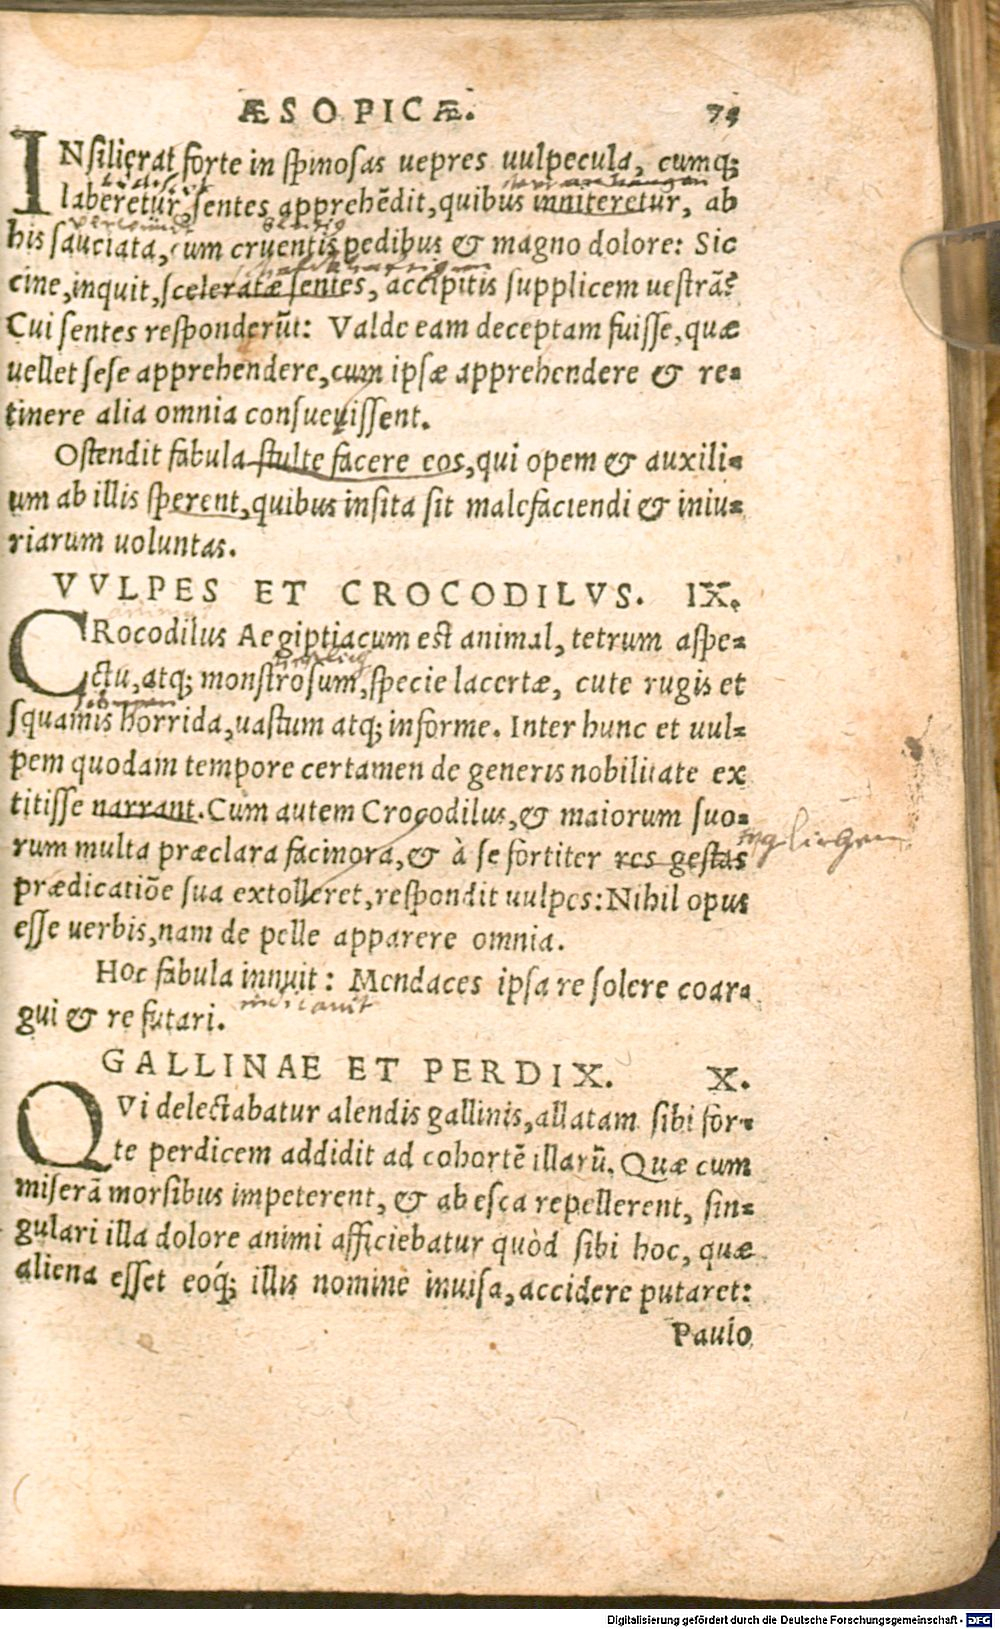 ÆSOPICÆ. 79
INsilierat forte in spinosas uepres uulpecula, cumq;
laberetur, sentes apprehẽdit, quibus inniteretur, ab
his sauciata, cum cruentis pedibus & magno dolore: Sic
cine, inquit, sceleratæ sentes, accipitis supplicem uestrã?
Cui sentes responderũt: Valde eam deceptam fuisse, quæ
uellet sese apprehendere, cum ipsæ apprehendere & re-
tinere alia omnia consueuissent.
Ostendit fabula stulte facere eos, qui opem & auxili-
um ab illis sperent, quibus insita sit malefaciendi & iniu-
riarum uoluntas.
VVLPES ET CROCODILVS. IX.
CRocodilus Aegiptiacum est animal, tetrum aspe-
ctu, atq; monstrosum, specie lacertæ, cute rugis et
squamis horrida, uastum atq; informe. Inter hunc et uul-
pem quodam tempore certamen de generis nobilitate ex
titisse narrant. Cum autem Crocodilus, & maiorum suo-
rum multa præclara facinora, & à se fortiter res gestas
prædicatiõe sua extolleret, respondit uulpes: Nihil opus
esse uerbis, nam de pelle apparere omnia.
Hoc fabula innuit: Mendaces ipsa re solere coar-
indicauit
gui & refutari.
GALLINAE ET PERDIX. X.
QVi delectabatur alendis gallinis, allatam sibi for-
te perdicem addidit ad cohortẽ illarũ. Quæ cum
miserã morsibus impeterent, & ab esca repellerent, sin-
gulari illa dolore animi afficiebatur quòd sibi hoc, quæ
aliena esset eoq́; illis nomine inuisa, accidere putaret:
Paulo
Digitalisierung gefördert durch die Deutsche Forschungsgemeinschaft - DFG